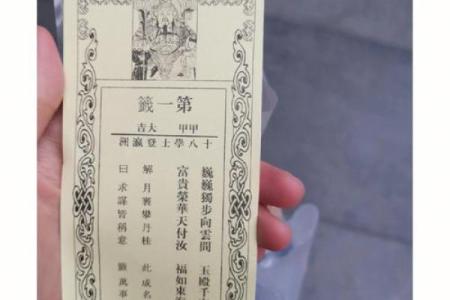 第一籤
甲甲 大吉
十八學士登瀛洲
巍巍獨步向雲間 玉殿千
富貴榮華天付汝 福如東
解 月裏攀丹桂 此成名
曰 求謀皆稱意 籤萬事